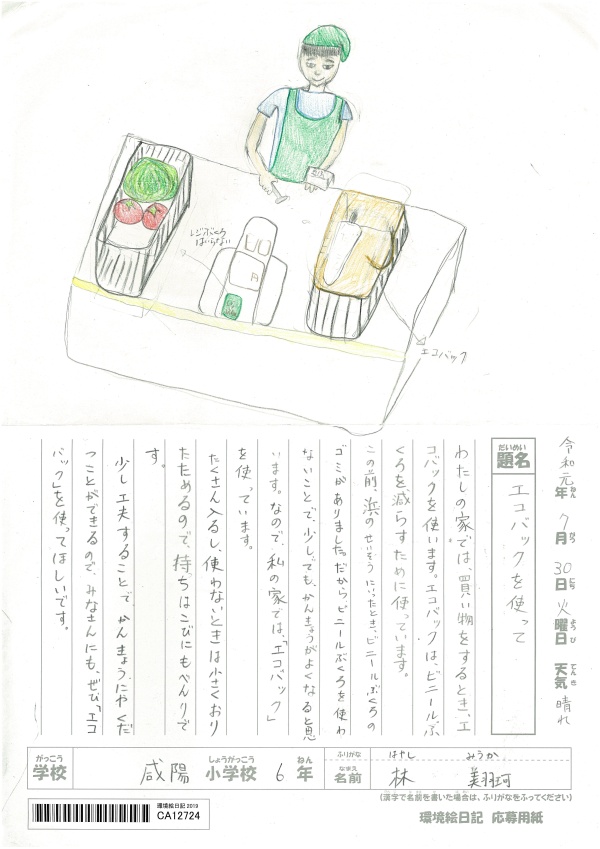 レジぶくろ
はいらない
円
エコバック
令和元年 7月 30日 火曜日 天気 晴れ
ねん がつ にち ようび てんき
だいめい
題名 エコバックを使って
わたしの家では、買い物をするとき、エ
コバックを使います。エコバックは、ビニールぶ
くろを減らすために使っています。
この前浜のせいそうにいったとき、ビニールぶくろの
ゴミがありました。だから、ビニールぶくろを使わ
ないことで、少しでも、かんきょうがよくなると思
います。なので、私の家では、「エコバック」
を使っています。
たくさん入るし、使わないときは小さくおり
たためるので、持ちはこびにもべんりで
す。
少し工夫することで、かんきょうにやくだ
つことができるので、みなさんにも、ぜひ「エコ
バック」を使ってほしいです。
がっこう しょうがっこう ねん
学校 咸陽 小学校 6 年
ふりがな はやし みうか
なまえ
名前 林 美羽珂
(漢字で名前を書いた場合は、ふりがなをふってください)
環境絵日記 2019
CA12724
環境絵日記 応募用紙